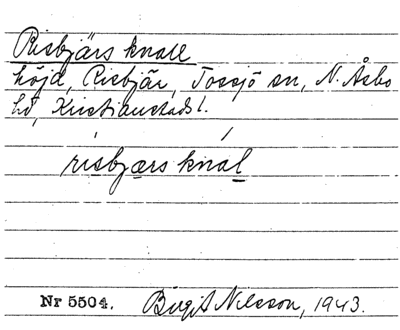 Risbjärs knall
höjd, Risbjär, Tossjö sn, N. Åsbo
hd, Kristianstads l.
risbjærs knal
Nr 5504. Birgit Nilsson, 1943.